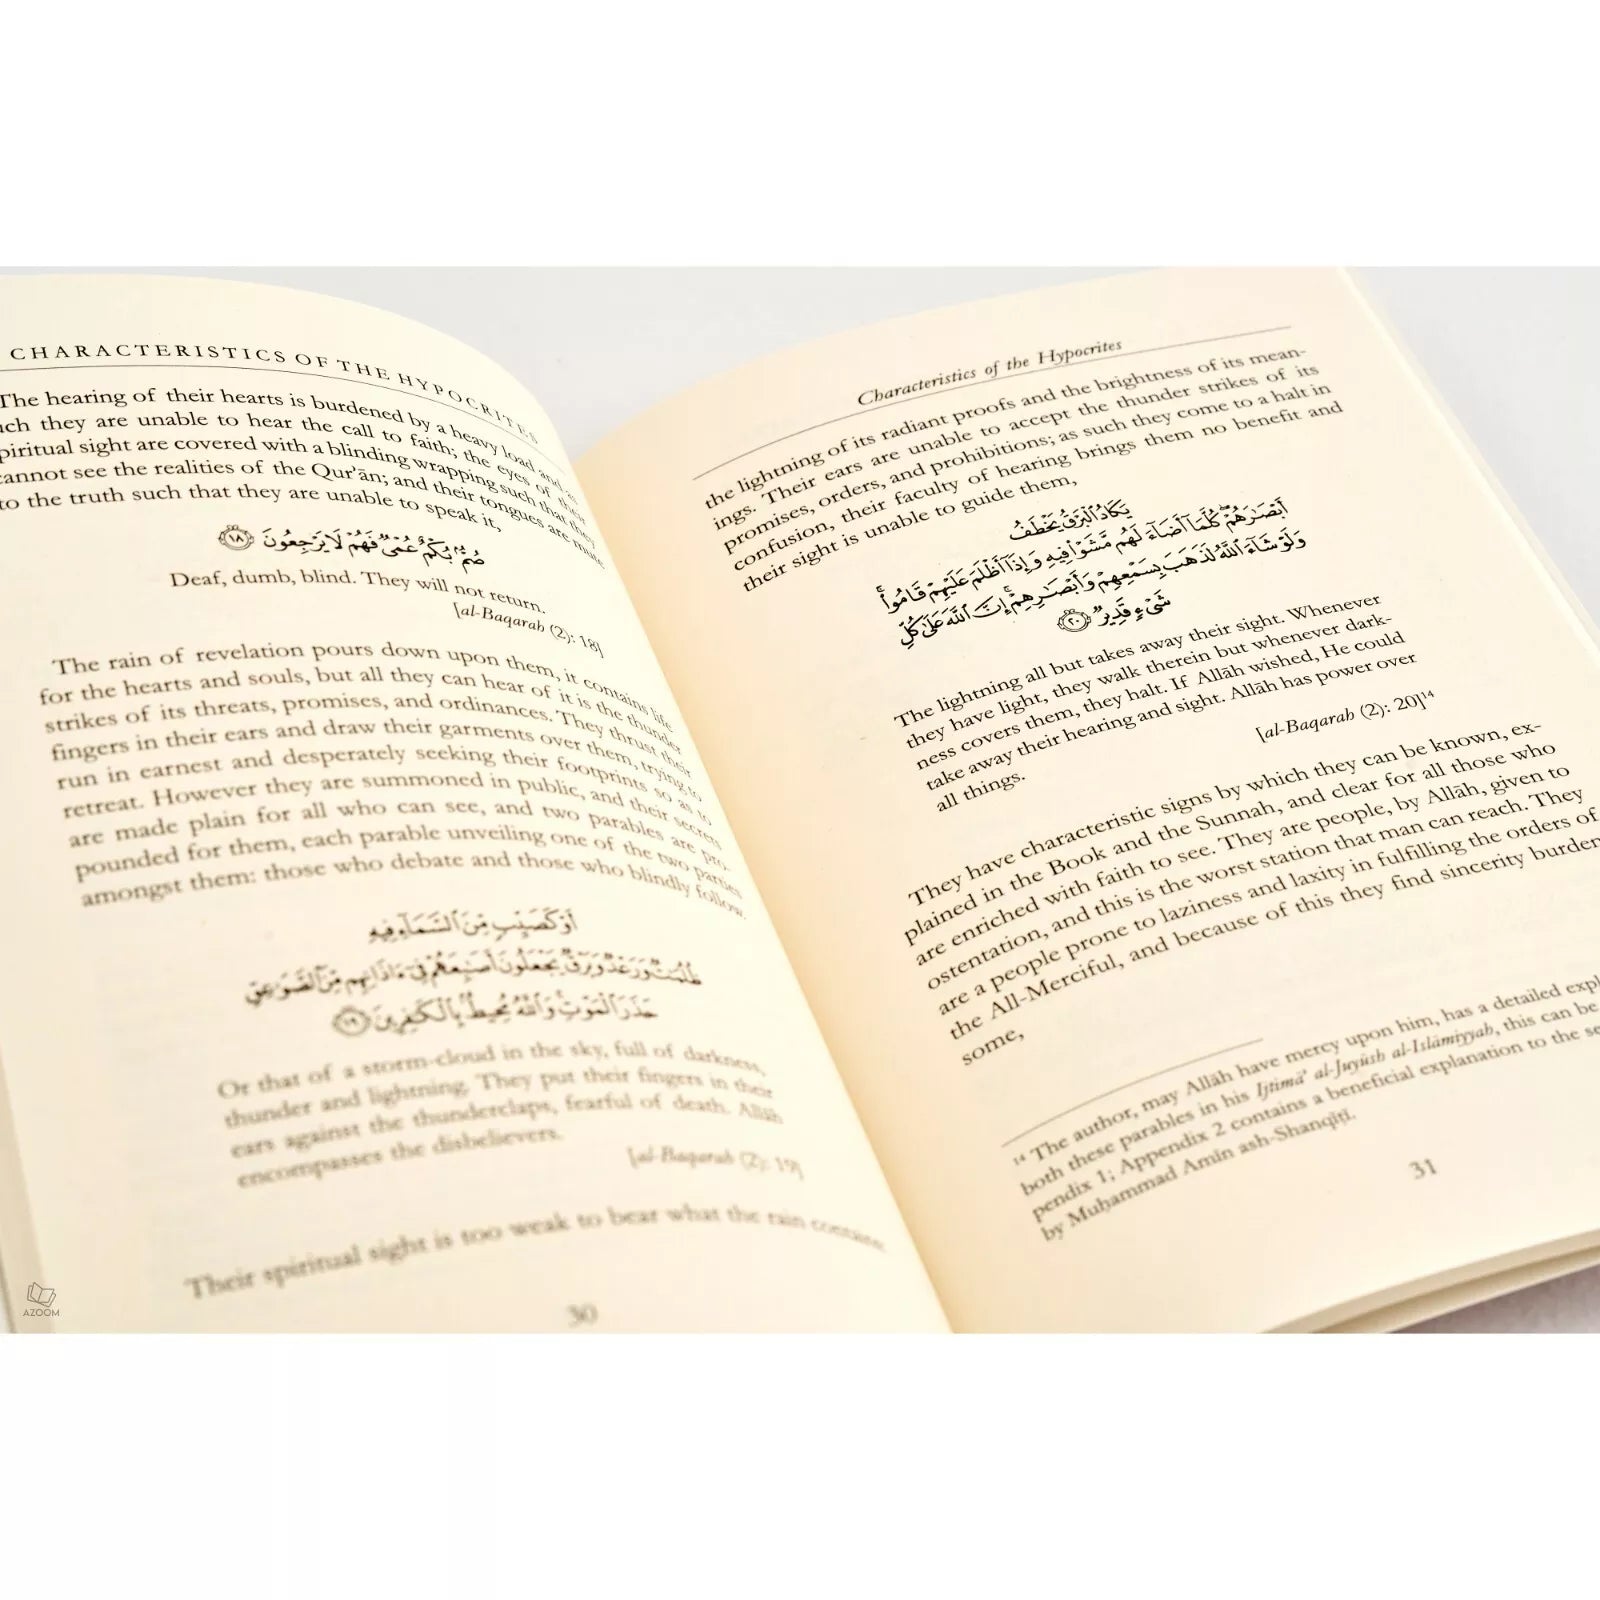 CHARACTERISTICS OF THE HYPOCRITES
The hearing of their hearts is burdened by a heavy load and, as
such they are unable to hear the call to faith; the eyes of their
spiritual sight are covered with a blinding wrapping such that they
cannot see the realities of the Qur'ān; and their tongues are mute
to the truth such that they are unable to speak it,
صُمٌّۢ بُكْمٌ عُمْىٌ فَهُمْ لَا يَرْجِعُونَ ١٨
Deaf, dumb, blind. They will not return.
[al-Baqarah (2): 18]
The rain of revelation pours down upon them, it contains life
for the hearts and souls, but all they can hear of it is the thunder
strikes of its threats, promises, and ordinances. They thrust their
fingers in their ears and draw their garments over them, trying to
run in earnest and desperately seeking their footprints so as to
retreat. However they are summoned in public, and their secrets
are made plain for all who can see, and two parables are pro-
pounded for them, each parable unveiling one of the two parties
amongst them: those who debate and those who blindly follow.
أَوْ كَصَيِّبٍ مِّنَ ٱلسَّمَآءِ فِيهِ
ظُلُمَٰتٌ وَرَعْدٌ وَبَرْقٌ يَجْعَلُونَ أَصَٰبِعَهُمْ فِىٓ ءَاذَانِهِم مِّنَ ٱلصَّوَٰعِقِ
حَذَرَ ٱلْمَوْتِ وَٱللَّهُ مُحِيطٌۢ بِٱلْكَٰفِرِينَ ١٩
Or that of a storm-cloud in the sky, full of darkness,
thunder and lightning. They put their fingers in their
ears against the thunderclaps, fearful of death. Allāh
encompasses the disbelievers.
[al-Baqarah (2): 19]
Their spiritual sight is too weak to bear what the rain contains:
30
AZOOM
Characteristics of the Hypocrites
the lightning of its radiant proofs and the brightness of its mean-
ings. Their ears are unable to accept the thunder strikes of its
promises, orders, and prohibitions; as such they come to a halt in
confusion, their faculty of hearing brings them no benefit and
their sight is unable to guide them,
يَكَادُ ٱلْبَرْقُ يَخْطَفُ
أَبْصَٰرَهُمْ كُلَّمَآ أَضَآءَ لَهُم مَّشَوْا۟ فِيهِ وَإِذَآ أَظْلَمَ عَلَيْهِمْ قَامُوا۟
وَلَوْ شَآءَ ٱللَّهُ لَذَهَبَ بِسَمْعِهِمْ وَأَبْصَٰرِهِمْ إِنَّ ٱللَّهَ عَلَىٰ كُلِّ
شَىْءٍ قَدِيرٌ ٢٠
The lightning all but takes away their sight. Whenever
they have light, they walk therein but whenever dark-
ness covers them, they halt. If Allāh wished, He could
take away their hearing and sight. Allāh has power over
all things.
[al-Baqarah (2): 20]14
They have characteristic signs by which they can be known, ex-
plained in the Book and the Sunnah, and clear for all those who
are enriched with faith to see. They are people, by Allāh, given to
ostentation, and this is the worst station that man can reach. They
are a people prone to laziness and laxity in fulfilling the orders of
the All-Merciful, and because of this they find sincerity burden
some,
14 The author, may Allāh have mercy upon him, has a detailed expl
both these parables in his Ijtimā' al-Juyūsh al-Islāmiyyah, this can be
pendix 1; Appendix 2 contains a beneficial explanation to the se
by Muḥammad Amīn ash-Shanqīṭī.
31